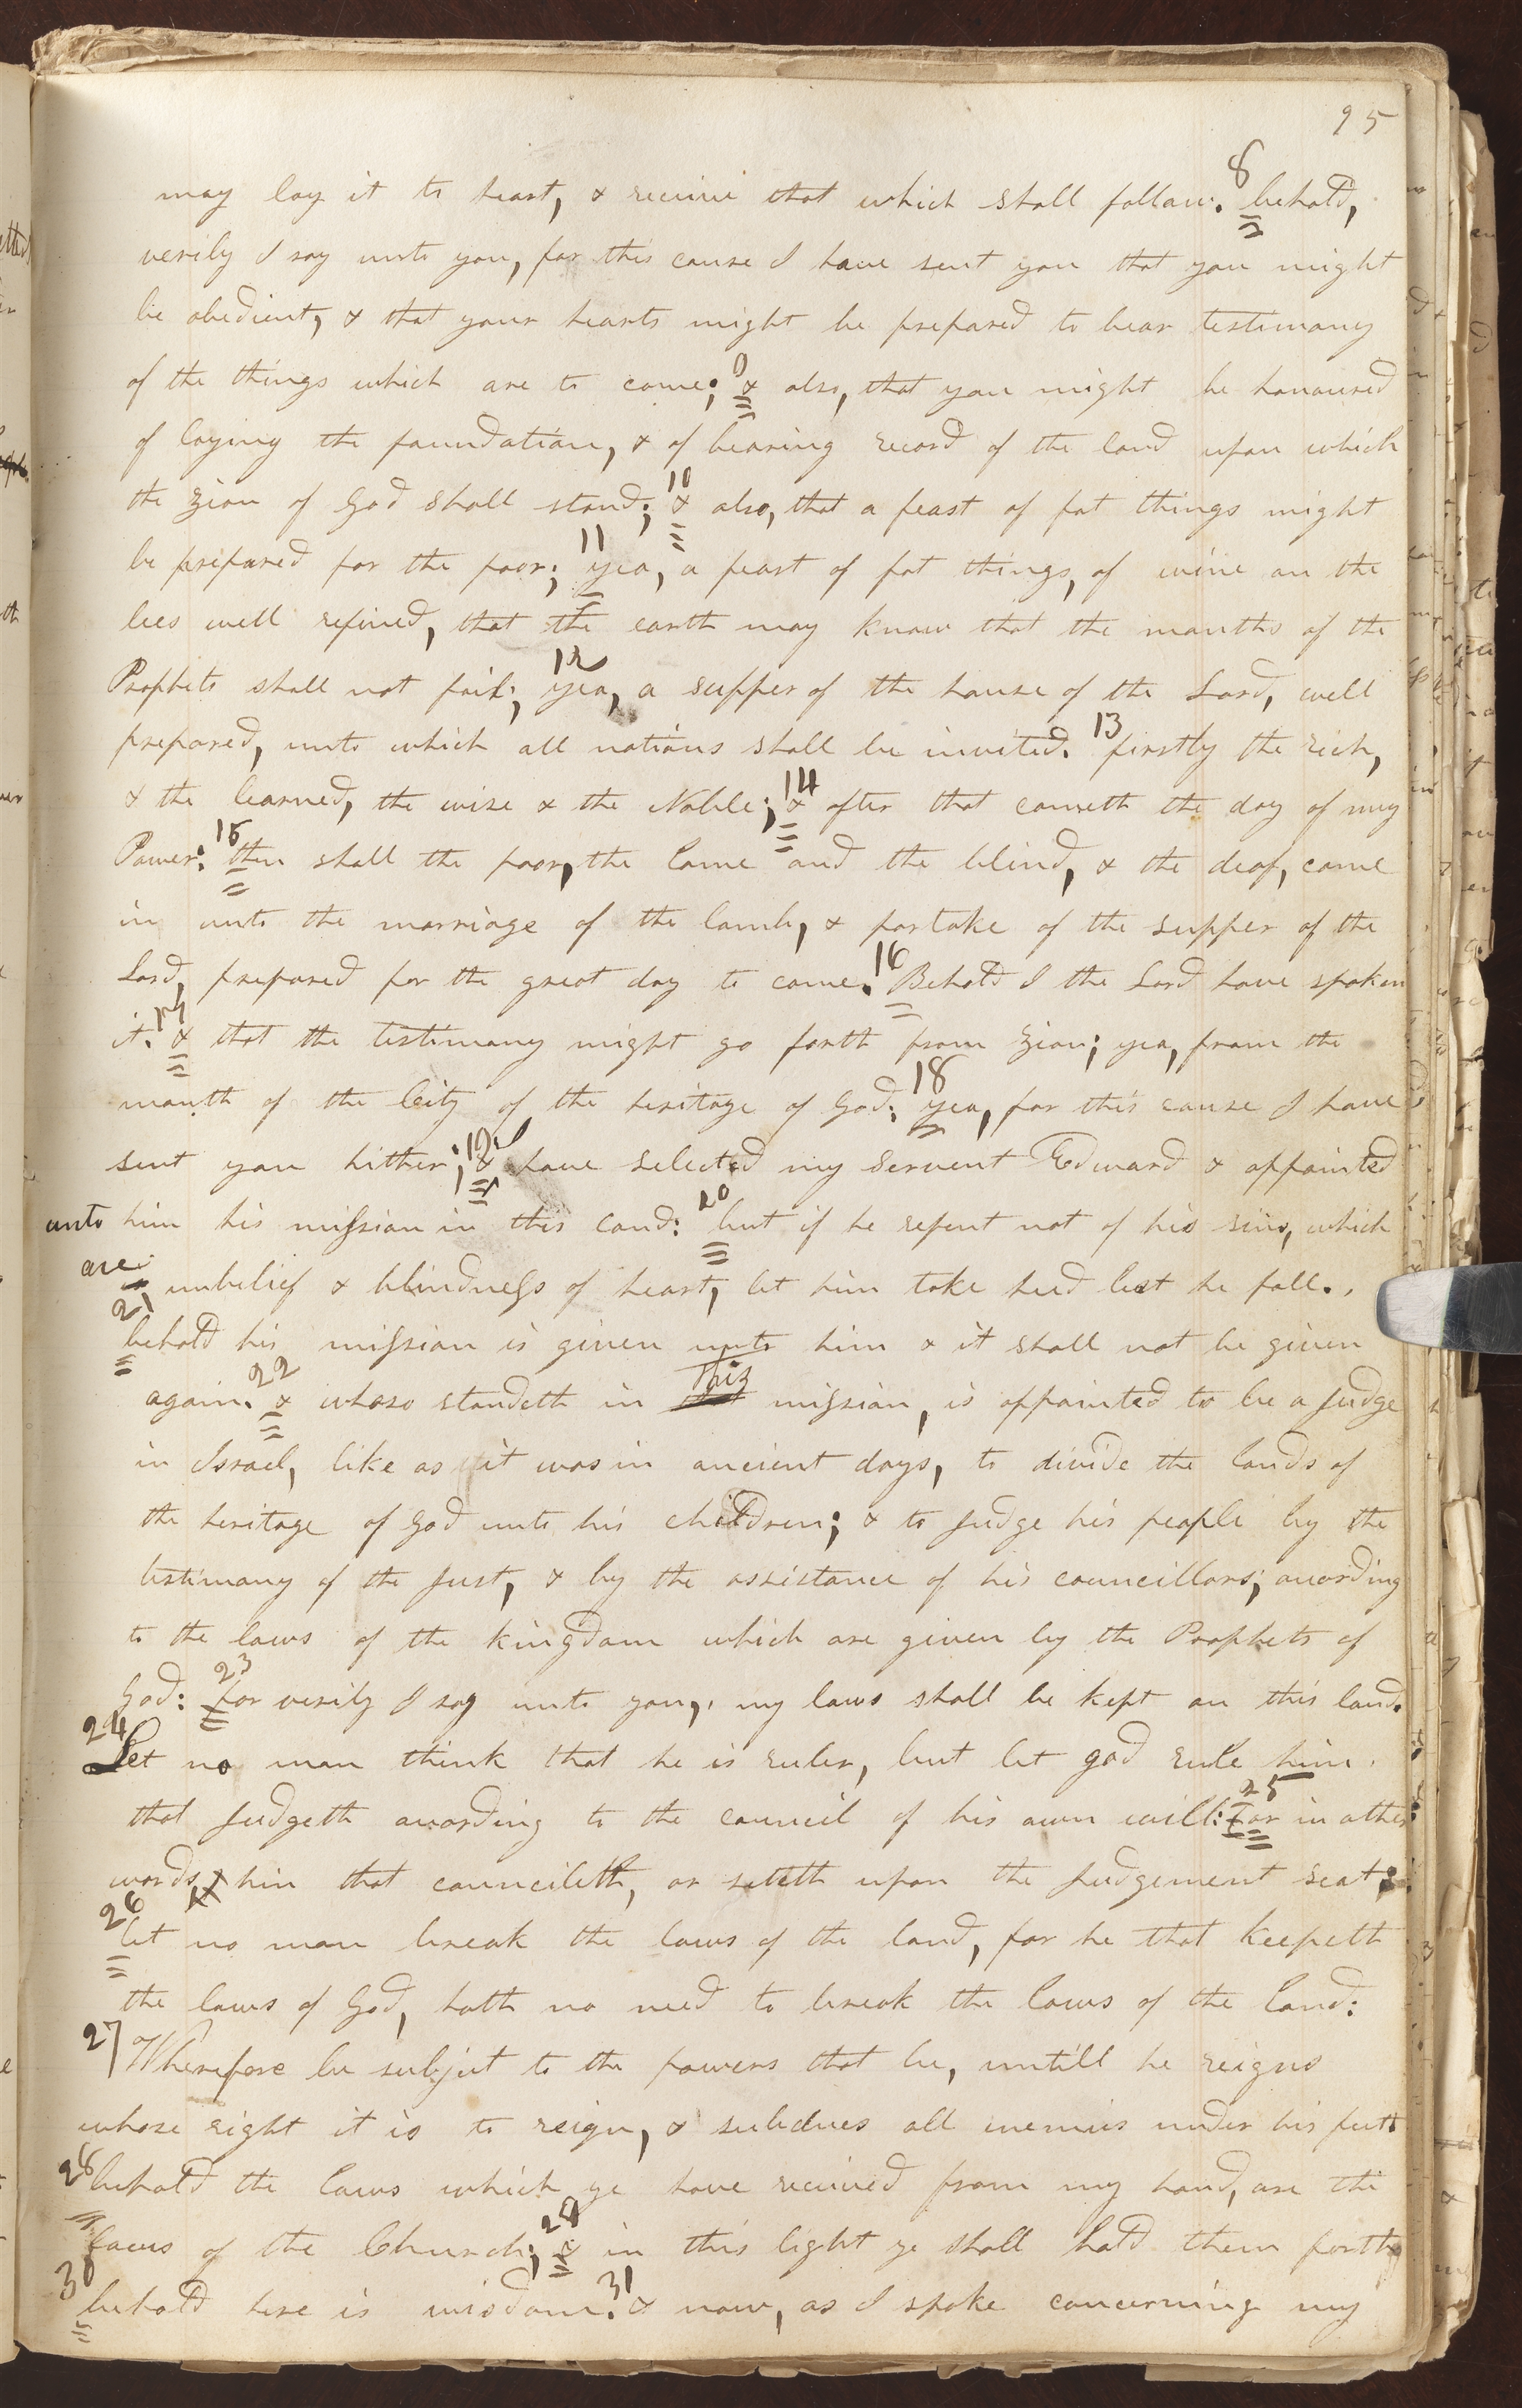 95
may lay it to heart, & receive that which shall follow. 8 behold,
verily I say unto you, for this cause I have sent you that you might
be obedient, & that your hearts might be prepared to bear testimony
of the things which are to come; 9 & also, that you might be honoured
of laying the foundation, & of bearing record of the land upon which
the Zion of God shall stand; 10 & also, that a feast of fat things might
be prepared for the poor; 11 yea, a feast of fat things, of wine on the
lees well refined, that the earth may know that the mouths of the
Prophets shall not fail; 12 yea, a supper of the house of the Lord, well
prepared, unto which all nations shall be invited. 13 firstly the rich,
& the learned, the wise & the Noble; 14 & after that cometh the day of my
Power: 15 then shall the poor, the lame and the blind, & the deaf, come
in unto the marriage of the lamb, & partake of the supper of the
Lord, prepared for the great day to come. 16 Behold I the Lord have spoken
it. 17 & that the testimony might go forth from Zion; yea, from the
mouth of the City of the heritage of God: 18 yea, for this cause I have
sent you hither; 19 & have selected my Servent Edward & appointed
unto him his mission in this land: 20 but if he repent not of his sins, which
are unbelief & blindness of heart, let him take heed lest he fall.
21 behold his mission is given unto him & it shall not be given
again. 22 & whoso standeth in this mission, is appointed to be a Judge
in Israel, like as it was in ancient days, to divide the lands of
the heritage of God unto his children; & to Judge his people by the
testimony of the Just, & by the assistance of his councillors; according
to the laws of the kingdom which are given by the Prophets of
God: 23 For verily I say unto you, my laws shall be kept on this land.
24 Let no man think that he is ruler, but let god rule him
that Judgeth according to the council of his own will: 25 or in other
words, him that councileth, or siteth upon the Judgement seat;
26 let no man break the laws of the land, for he that keepeth
the laws of God, hath no need to break the laws of the land:
27 Wherefore be subject to the powers that be, untill he reigns
whose right it is to reign, & subdues all enemies under his feet.
28 behold the laws which ye have received from my hand, are the
laws of the Church; 29 & in this light ye shall hold them forth
30 behold here is wisdom. 31 & now, as I spoke concerning my